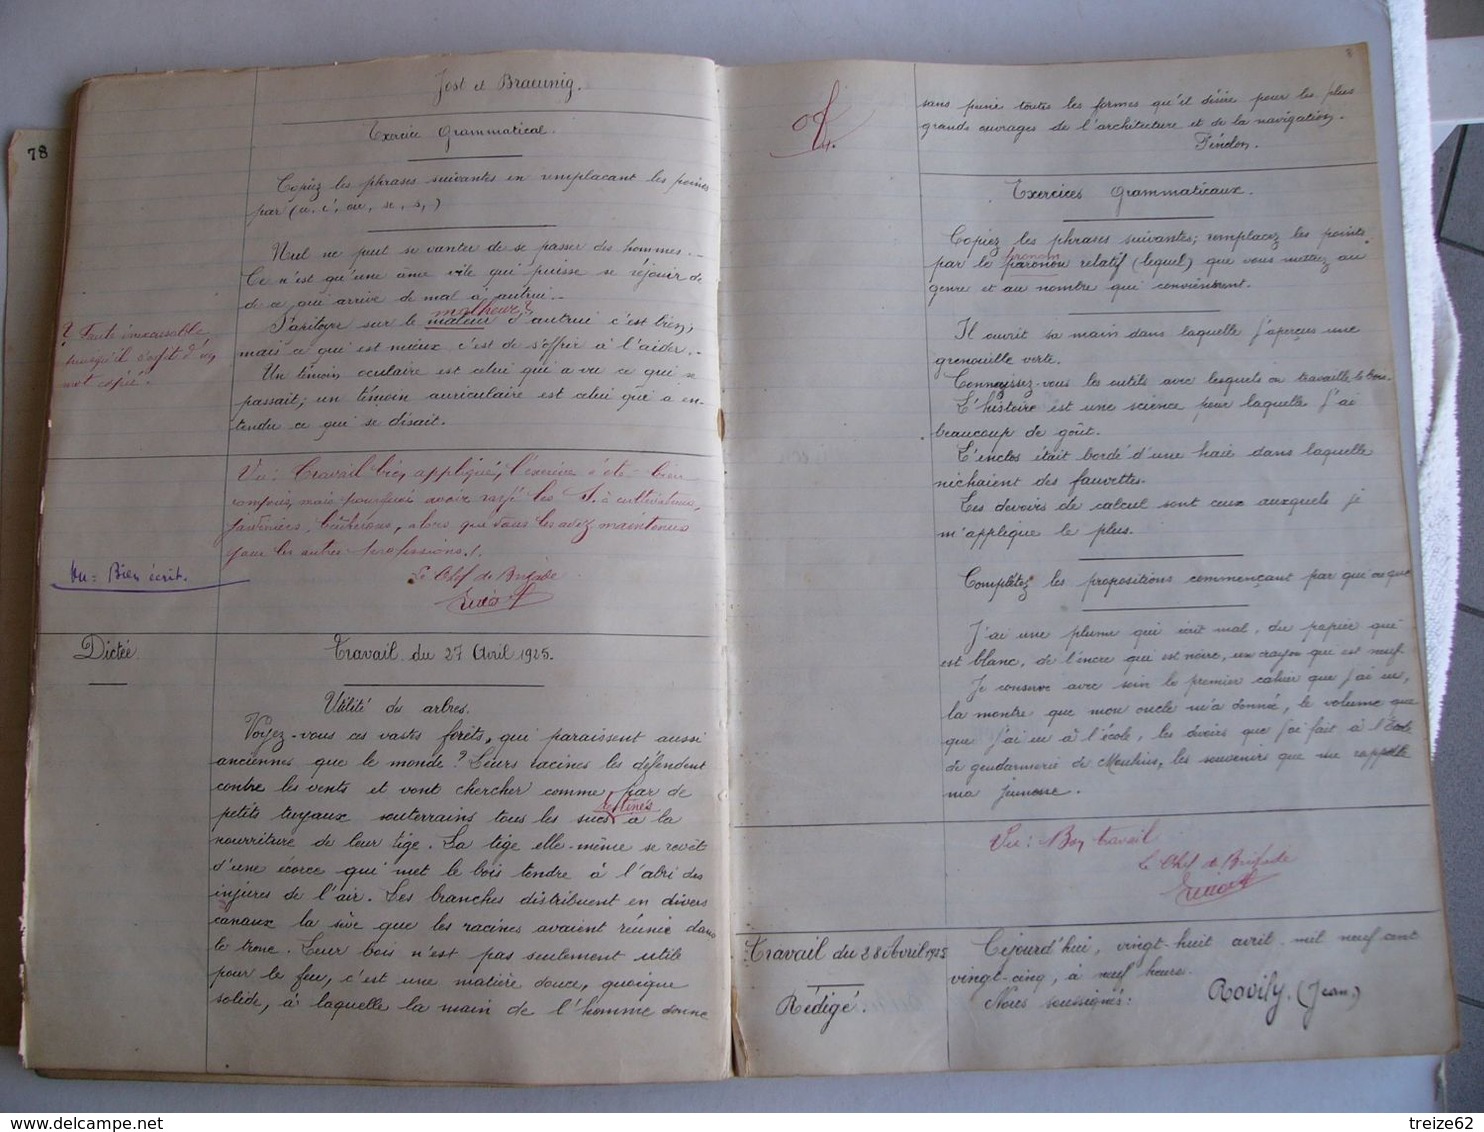 78
Jost et Braeunig.
Exercice grammatical.
Copiez les phrases suivantes en remplacant les points
par (a, i, ou, se, s,)
Nul ne peut se vanter de se passer des hommes.
Ce n'est qu'une âme vile qui puisse se réjouir de
de ce qui arrive de mal à autrui.
malheur
S'apitoyer sur le mateur d'autrui c'est bien,
mais ce qui est mieux c'est de s'offrir à l'aider.
Un témoin oculaire est celui qui a vu ce qui se
passait; un témoin auriculaire est celui qui a en-
tendu ce qui se disait.
? Faute inexcusable
puisqu'il s'agit d'un
mot copié.
Vu: Travail bien appliqué; l'exercice a été bien
compris, mais pourquoi avoir rayé les S. à cultivateurs,
jardiniers, bûcherons, alors que vous les avez maintenus
pour les autres professions.
Le Chef de Brigade
Vu = Bien écrit.
Dictée
Travail du 27 Avril 1925.
Utilité des arbres.
Voyez-vous ces vastes forêts, qui paraissent aussi
anciennes que le monde? Leurs racines les défendent
contre les vents et vont chercher comme par de
petits tuyaux souterrains tous les sucs destinés à la
nourriture de leur tige. La tige elle-même se revêt
d'une écorce qui met le bois tendre à l'abri des
injures de l'air. Les branches distribuent en divers
canaux la sève que les racines avaient réunie dans
le tronc. Leur bois n'est pas seulement utile
pour le feu, c'est une matière douce, quoique
solide, à laquelle la main de l'homme donne
8
sans peine toutes les formes qu'il désire pour les plus
grands ouvrages de l'architecture et de la navigation.
Fénelon.
Exercices grammaticaux.
Copiez les phrases suivantes; remplacez les points
pronom
par le paronou relatif (lequel) que vous mettez au
genre et au nombre qui conviennent.
Il ouvrit sa main dans laquelle j'aperçus une
grenouille verte.
Connaissez-vous les outils avec lesquels on travaille le bois.
L'histoire est une science pour laquelle j'ai
beaucoup de goût.
L'enclos était bordé d'une haie dans laquelle
nichaient des fauvettes.
Les devoirs de calcul sont ceux auxquels je
m'applique le plus.
Complétez les propositions commençant par qui ou que
J'ai une plume qui écrit mal, du papier qui
est blanc, de l'encre qui est noire, un crayon qui est neuf
Je conserve avec soin le premier cahier que j'ai eu,
la montre que mon oncle m'a donné, le volume que
que j'ai eu à l'école, les devoirs que j'ai fait à l'école
de gendarmerie de les souvenirs que me rappelle
ma jeunesse.
Vu: Bon travail
Le Chef de Brigade
Travail du 28 Avril 1925
Rédigé.
Cejourd'hui, vingt-huit avril mil neuf cent
vingt-cinq, à neuf heures.
Nous soussignés: Rovily. (Jean.)
www.delcampe.net
treize62